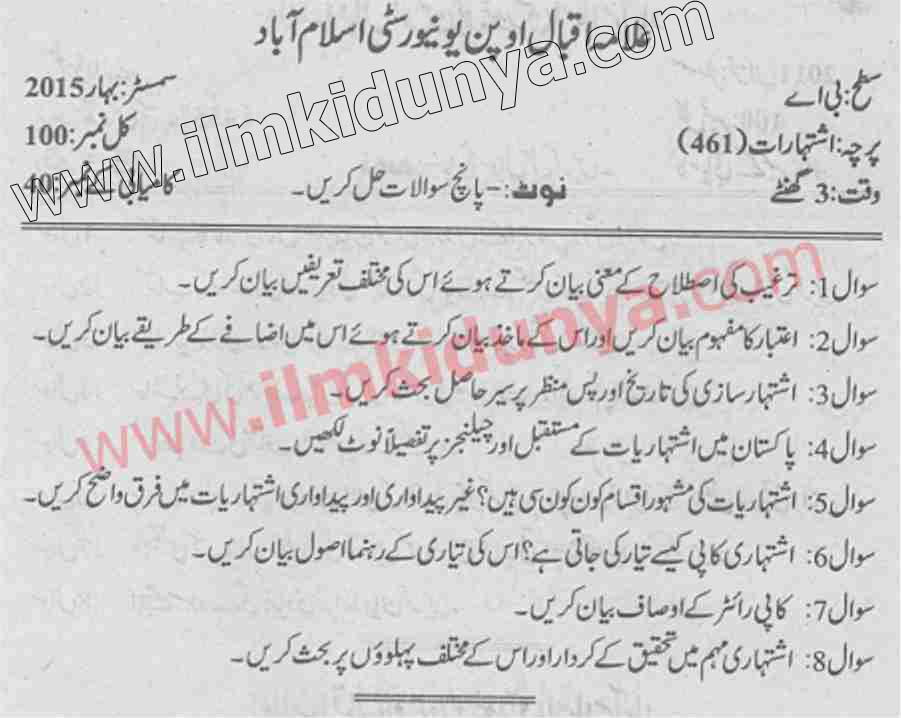 علامہ اقبال اوپن یونیورسٹی اسلام آباد
سطح: بی اے سمسٹر: بہار 2015
پرچہ: اشتہارات (461) کل نمبر: 100
وقت: 3 گھنٹے نوٹ:- پانچ سوالات حل کریں۔ کامیابی کے نمبر: 40
www.ilmkidunya.com
سوال 1: ترغیب کی اصطلاح کے معنی بیان کرتے ہوئے اس کی مختلف تعریفیں بیان کریں۔
سوال 2: اعتبار کا مفہوم بیان کریں اور اس کے ماخذ بیان کرتے ہوئے اس میں اضافے کے طریقے بیان کریں۔
سوال 3: اشتہار سازی کی تاریخ اور پس منظر پر سیر حاصل بحث کریں۔
سوال 4: پاکستان میں اشتہاریات کے مستقبل اور چیلنجز پر تفصیلاً نوٹ لکھیں۔
سوال 5: اشتہاریات کی مشہور اقسام کون کون سی ہیں؟ غیر پیداواری اور پیداواری اشتہاریات میں فرق واضح کریں۔
سوال 6: اشتہاری کاپی کیسے تیار کی جاتی ہے؟ اس کی تیاری کے رہنما اصول بیان کریں۔
سوال 7: کاپی رائٹر کے اوصاف بیان کریں۔
سوال 8: اشتہاری مہم میں تحقیق کے کردار اور اس کے مختلف پہلوؤں پر بحث کریں۔
www.ilmkidunya.com